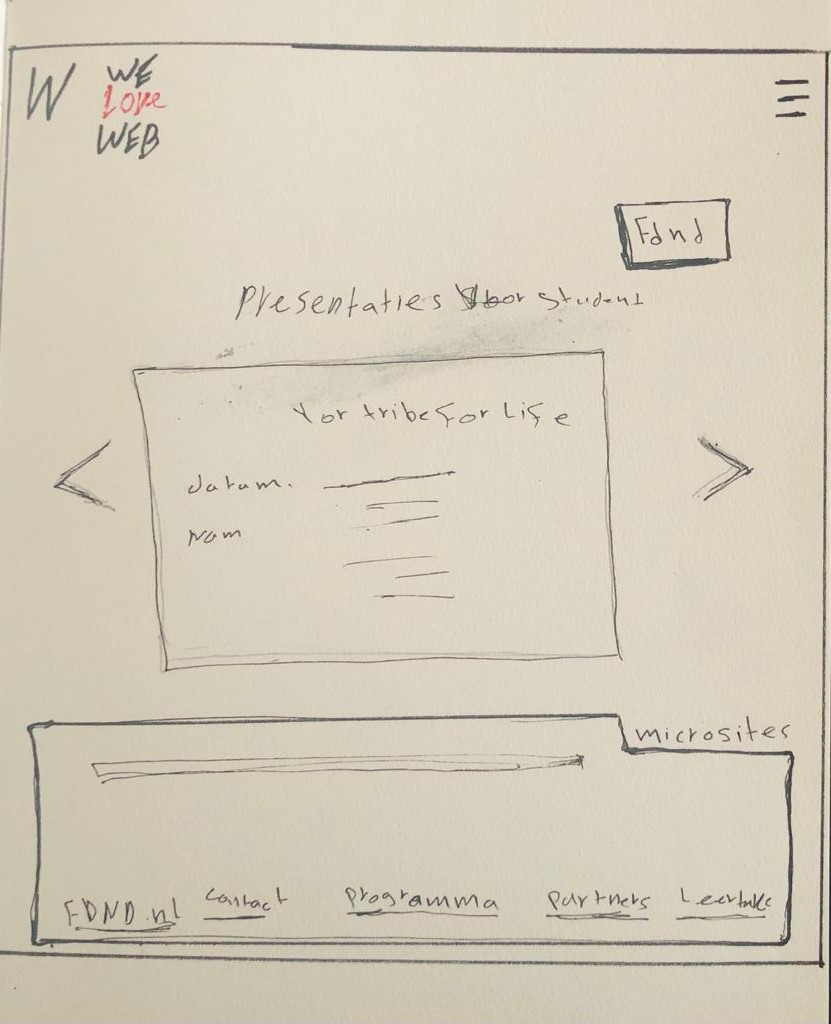 W
WE
Love
WEB
Fdnd
Presentaties voor student
Yor tribe for Life
datum.
Nam
microsites
FDND.nl contact programma partners